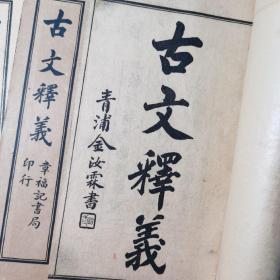 古文釋義
青浦金汝霖書
古文釋義
章福記書局
印行